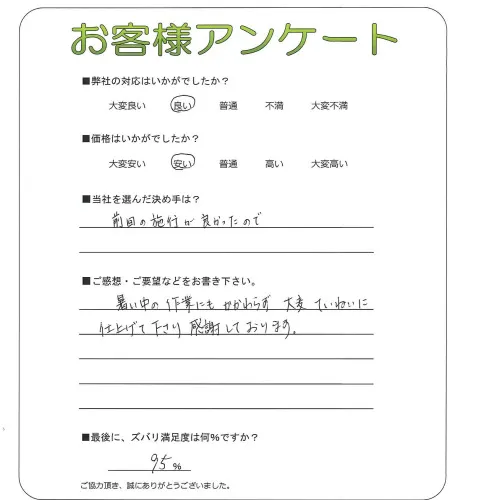 お客様アンケート
■弊社の対応はいかがでしたか？
大変良い 良い 普通 不満 大変不満
■価格はいかがでしたか？
大変安い 安い 普通 高い 大変高い
■当社を選んだ決め手は？
前回の施行が良かったので
■ご感想・ご要望などをお書き下さい。
暑い中の作業にもかかわらず 大変ていねいに
仕上げて下さり感謝しております。
■最後に、ズバリ満足度は何%ですか？
95%
ご協力頂き、誠にありがとうございました。